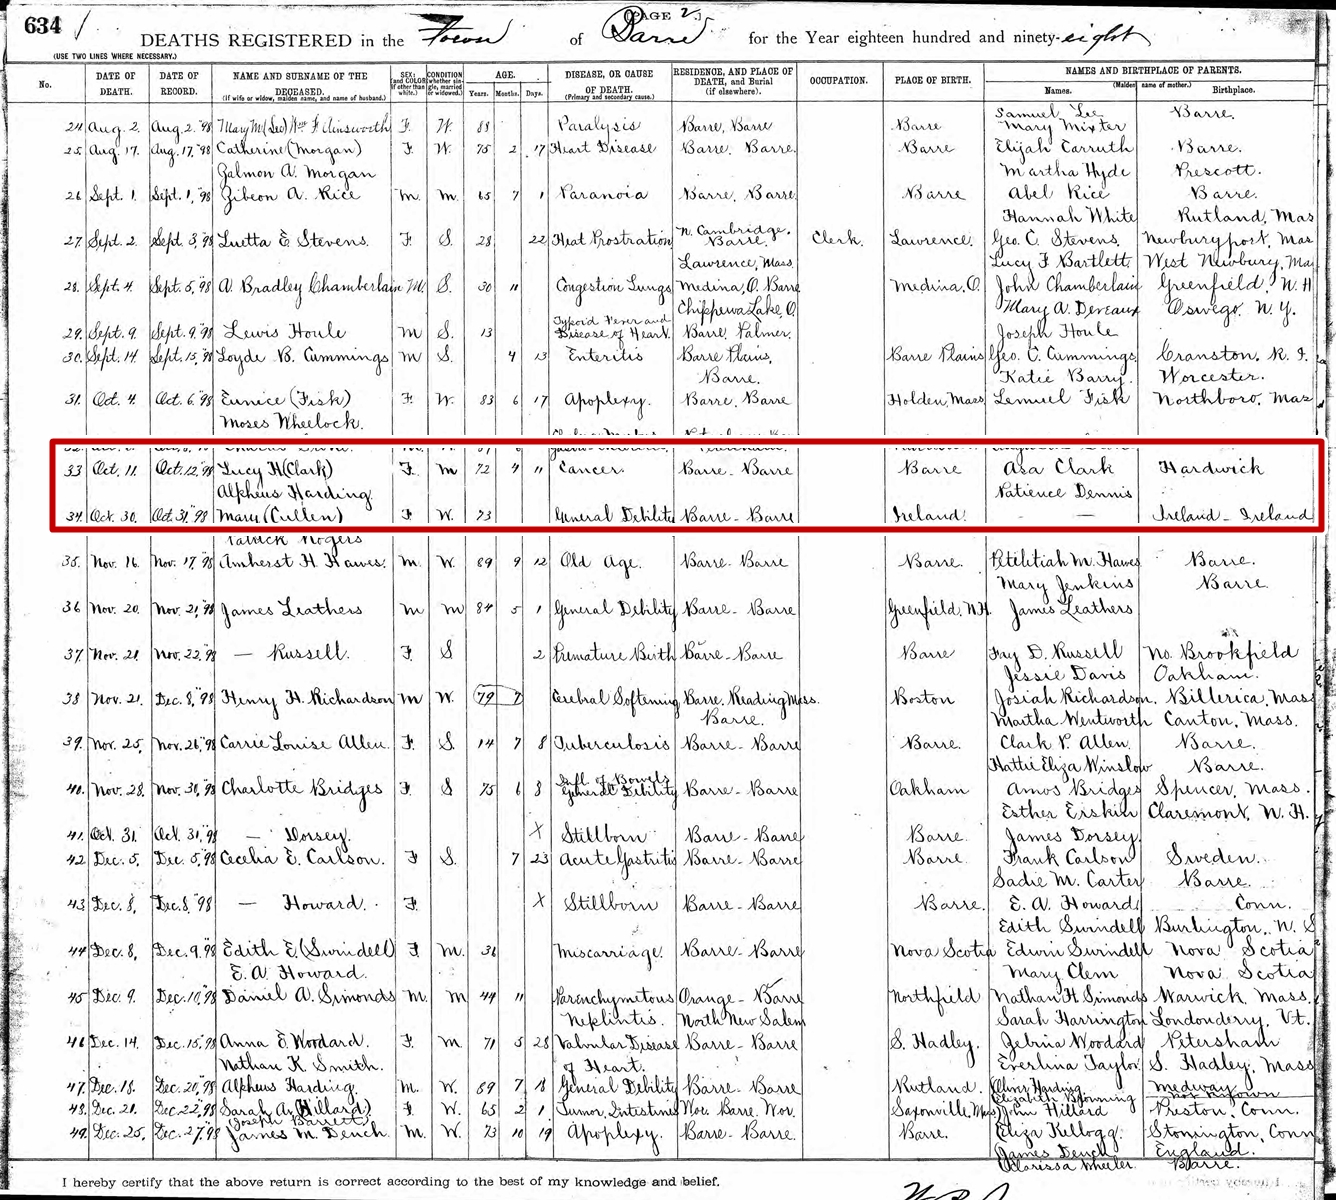 634
(PAGE 2.)
DEATHS REGISTERED in the Town of Barre for the Year eighteen hundred and ninety-eight
(USE TWO LINES WHERE NECESSARY.)
No. DATE OF DEATH. DATE OF RECORD. NAME AND SURNAME OF THE DECEASED. (If wife or widow, maiden name, and name of husband.) SEX; (and COLOR if other than white.) CONDITION (whether single, married or widowed.) AGE. Years. Months. Days. DISEASE, OR CAUSE OF DEATH. (Primary and secondary cause.) RESIDENCE, AND PLACE OF DEATH, and Burial (if elsewhere). OCCUPATION. PLACE OF BIRTH. NAMES AND BIRTHPLACE OF PARENTS. Names. (Maiden name of mother.) Birthplace.
Samuel Lee Barre.
24 Aug. 2. Aug. 2. "98 Mary M (Lee) F Ainsworth F. W. 88 Paralysis Barre, Barre Barre Mary Mixter
25 Aug. 17. Aug. 17, "98 Catherine (Morgan) F. W. 75 2 17 Heart Disease Barre. Barre. Barre Elijah Carruth Barre.
Zalmon A. Morgan Martha Hyde Prescott.
26 Sept. 1. Sept. 1, "98 Gibeon A. Rice M. M. 65 7 1 Paranoia Barre, Barre. Barre Abel Rice Barre.
Hannah White Rutland, Mas
27 Sept. 2. Sept. 3, "98 Luetta E. Stevens. F. S. 28 22 Heat Prostration N. Cambridge, Barre. Clerk. Lawrence. Geo. C. Stevens, Newburyport, Mas
Lawrence, Mass. Lucy F Bartlett. West Newbury, Ma
28. Sept. 4. Sept. 5, "98 A. Bradley Chamberlain M. S. 30 11 Congestion Lungs Medina, O. Barre Medina, O. John Chamberlain Greenfield, N. H
Chippewa Lake, O. Mary A. Deveaux Oswego, N. Y.
29. Sept. 9. Sept. 9, "98 Lewis Houle M S. 13 Typoid Fever and Disease of Heart. Barre, Palmer. Joseph Houle
30. Sept. 14. Sept. 15, "98 Loyde B. Cummings M S. 4 13 Enteritis Barre Plains, Barre Plains Geo. C. Cummings. Cranston, R. I.
Barre. Katie Barry. Worcester.
31. Oct. 4. Oct. 6, "98 Eunice (Fisk) F. W. 83 6 17 Apoplexy. Barre. Barre Holden, Mass. Lemuel Fisk Northboro, Mas
Moses Wheelock.
33 Oct. 11. Oct. 12, "98 Lucy H (Clark) F. M 72 4 11 Cancer. Barre - Barre Barre Asa Clark Hardwick
Alpheus Harding. Patience Dennis
34. Oct. 30. Oct. 31, "98 Mary (Cullen) F W. 73 General Debility Barre - Barre Ireland. - - Ireland - Ireland
Patrick Rogers
35. Nov. 16. Nov. 17, "98 Amherst H. Hawes. M. W. 89 9 12 Old Age. Barre - Barre Barre. M. Hawes Barre.
Mary Jenkins Barre
36 Nov. 20. Nov. 21, "98 James Leathers M M 84 5 1 General Debility Barre - Barre Greenfield, N.H. James Leathers
37 Nov. 21. Nov. 22, "98 - Russell. F. S 2 Premature Birth Barre - Barre Barre Fay D. Russell No. Brookfield
Jessie Davis Oakham.
38 Nov. 21. Dec. 8, "98 Henry H. Richardson M W. 79 7 Cerebral Softening Barre. Reading Mass. Boston Josiah Richardson. Billerica, Mass
Barre. Martha Wentworth Canton, Mass.
39. Nov. 25, Nov. 26, "98 Carrie Louise Allen. F. S. 14 7 8 Tuberculosis Barre - Barre Barre. Clark P. Allen. Barre.
Hattie Eliza Winslow Barre.
40. Nov. 28. Nov. 30, "98 Charlotte Bridges F. S 75 6 8 Infl. of Bowels General Debility Barre - Barre Oakham Amos Bridges Spencer, Mass.
Esther Erskin Claremont, N. H.
41. Oct. 31. Oct. 31, "98 - Dorsey. X Stillborn Barre - Barre Barre. James Dorsey.
42 Dec. 5. Dec. 5, "98 Cecelia E. Carlson. F S. 7 23 Acute Gastritis Barre - Barre Barre Frank Carlson Sweden.
Sadie M. Carter Barre.
43 Dec. 8, Dec. 8, "98 - Howard. F. X Stillborn Barre - Barre Barre. E. A. Howard Conn.
Edith Swindell Burlington, N. S
44 Dec. 8, Dec. 9, "98 Edith E. (Swindell) F M. 36 Miscarriage. Barre - Barre Nova Scotia Edwin Swindell Nova Scotia
E. A. Howard. Mary Clem Nova Scotia
45 Dec. 9. Dec. 10, "98 Daniel A. Simonds M. M 44 11 Parenchymetous Orange - Barre Northfield Nathan H Simonds Warwick, Mass.
Neplintis. North New Salem Sarah Harrington Londonderry, Vt.
46 Dec. 14. Dec. 15, "98 Anna E. Woodard. F. M. 71 5 28 Valvular Disease Barre - Barre S. Hadley. Woodard Petersham
Nathan K. Smith. of Heart. Everlina Taylor S. Hadley, Mass
47. Dec. 18. Dec. 20, "98 Alpheus Harding. M. W. 89 7 18 General Debility Barre - Barre Rutland. Oliver Harding Medway
Elizabeth Browning not known
48. Dec. 21. Dec. 22, "98 Sarah A. (Hillard) F. W. 65 2 1. Tumor, Intestines Wor. Barre. Wor. Saxonville, Mass John Hillard Preston, Conn.
(Joseph Barrett) Eliza Kellogg. Stonington, Conn
49. Dec. 25, Dec. 27, "98 James M. Dench. M. W. 73 10 19 Apoplexy. Barre - Barre. Barre. James Dench England.
Clarissa Wheeler. Barre.
I hereby certify that the above return is correct according to the best of my knowledge and belief.